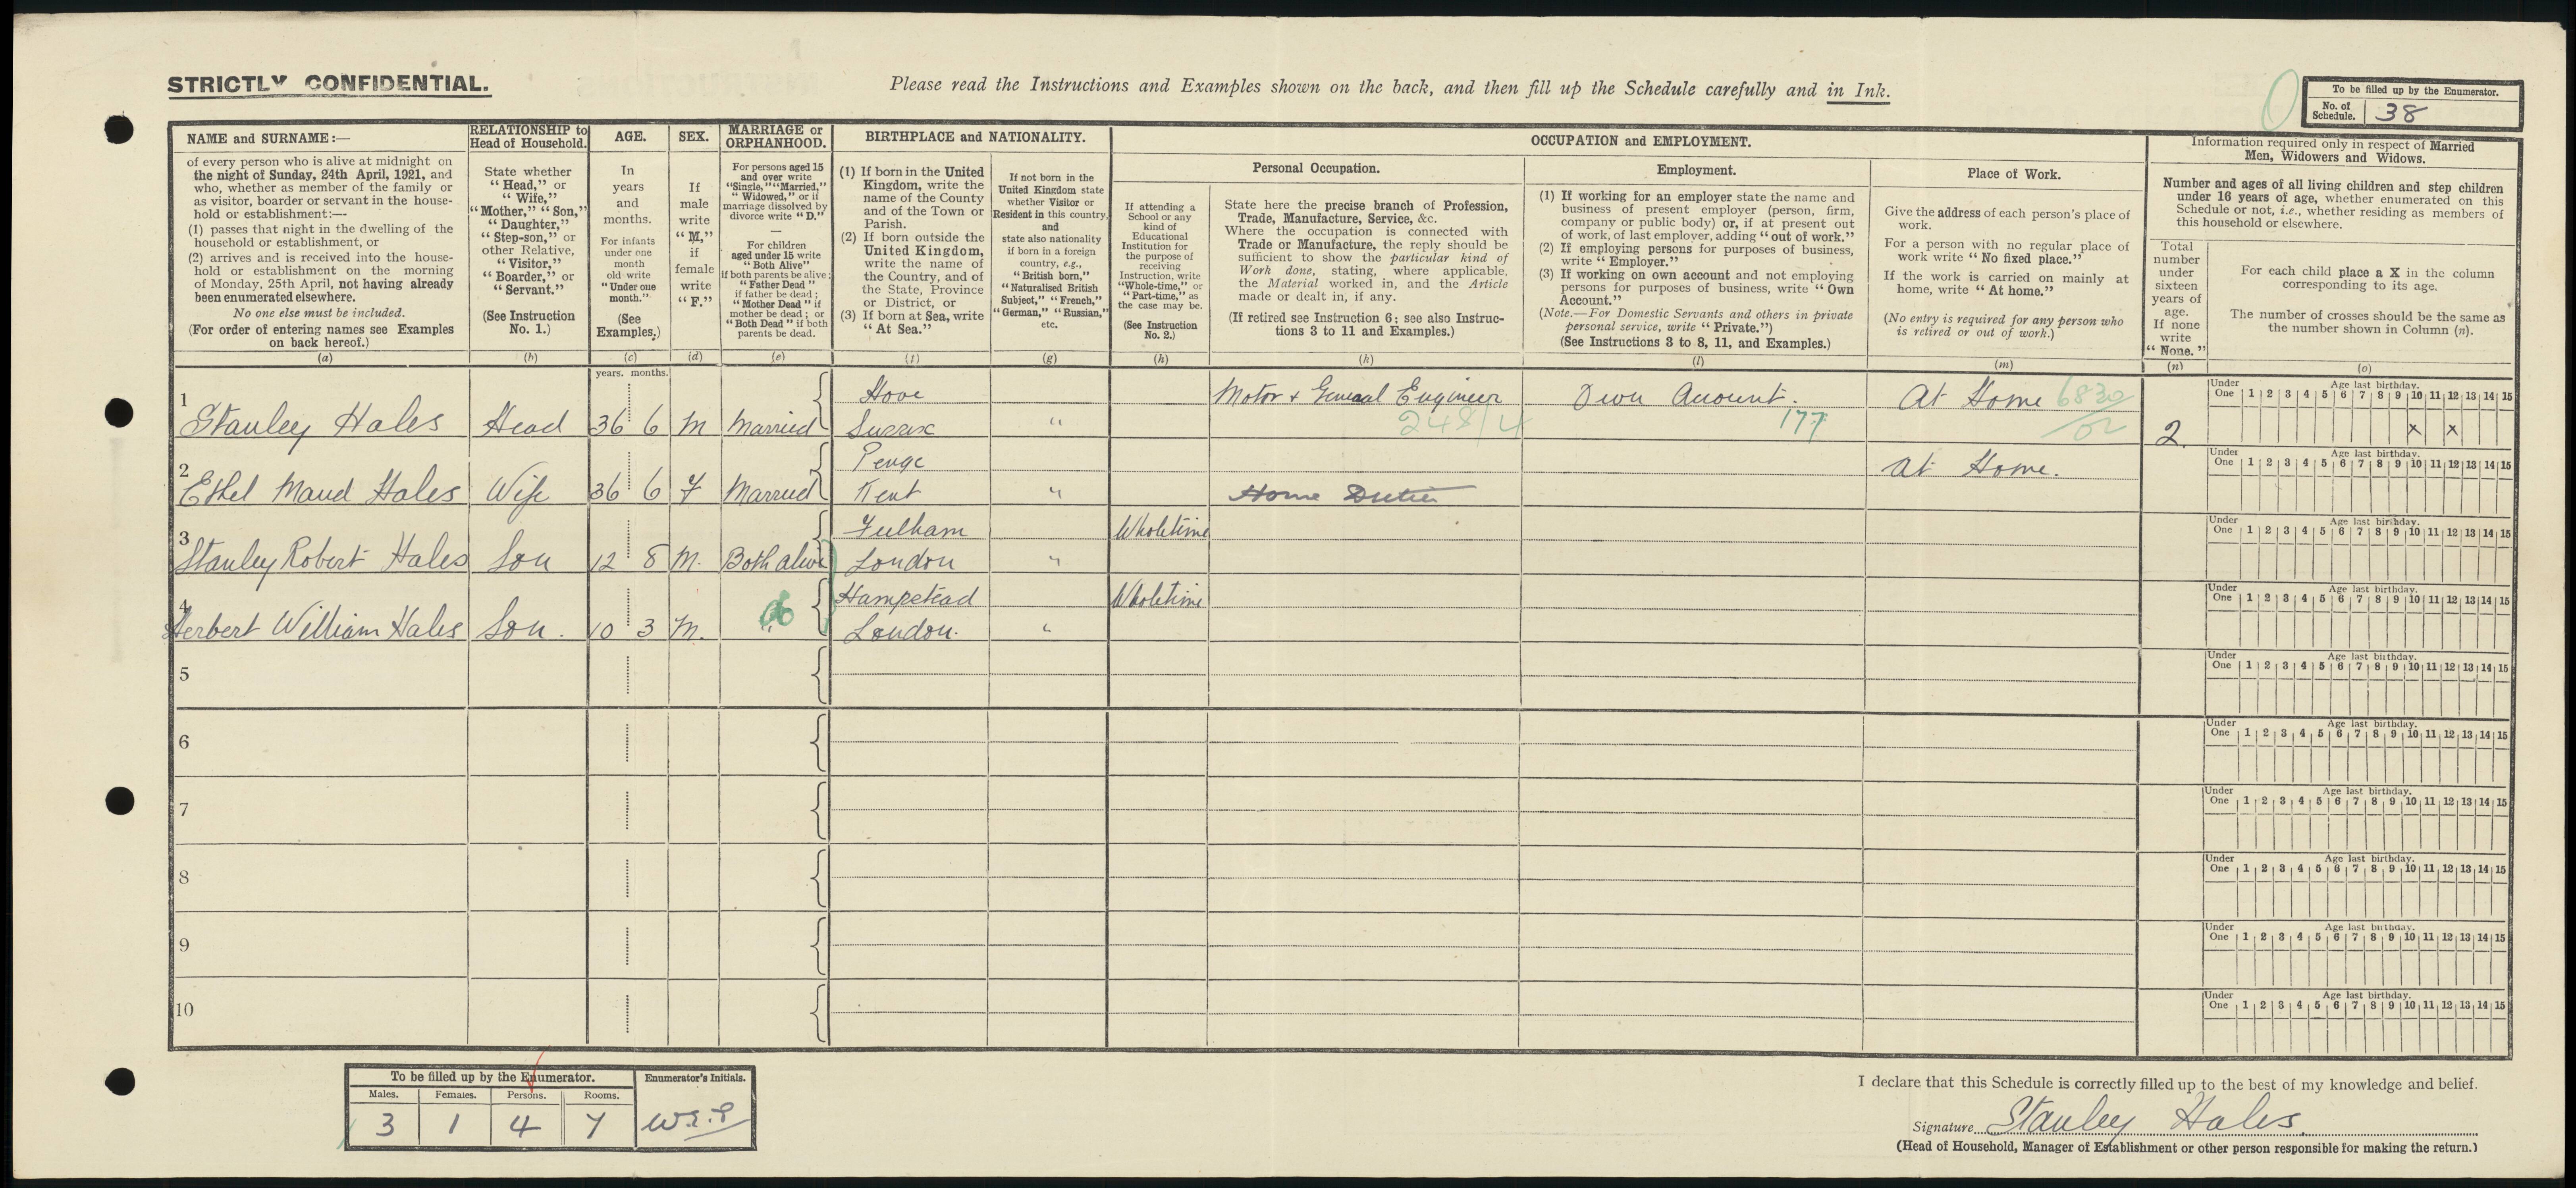 STRICTLY CONFIDENTIAL.
Please read the Instructions and Examples shown on the back, and then fill up the Schedule carefully and in Ink.
To be filled up by the Enumerator.
No. of Schedule. 38
NAME and SURNAME:—
of every person who is alive at midnight on
the night of Sunday, 24th April, 1921, and
who, whether as member of the family or
as visitor, boarder or servant in the house-
hold or establishment:—
(1) passes that night in the dwelling of the
household or establishment, or
(2) arrives and is received into the house-
hold or establishment on the morning
of Monday, 25th April, not having already
been enumerated elsewhere.
No one else must be included.
(For order of entering names see Examples
on back hereof.)
(a)
RELATIONSHIP to
Head of Household.
State whether
"Head," or
"Wife,"
"Mother," "Son,"
"Daughter,"
"Step-son," or
other Relative,
"Visitor,"
"Boarder," or
"Servant."
(See Instruction
No. 1.)
(b)
AGE.
In
years
and
months.
For infants
under one
month
old write
"Under one
month."
(See
Examples.)
(c)
SEX.
If
male
write
"M,"
if
female
write
"F."
(d)
MARRIAGE or
ORPHANHOOD.
For persons aged 15
and over write
"Single," "Married,"
"Widowed," or if
marriage dissolved by
divorce write "D."
For children
aged under 15 write
"Both Alive"
if both parents be alive;
"Father Dead"
if father be dead;
"Mother Dead" if
mother be dead; or
"Both Dead" if both
parents be dead.
(e)
BIRTHPLACE and NATIONALITY.
(1) If born in the United
Kingdom, write the
name of the County
and of the Town or
Parish.
(2) If born outside the
United Kingdom,
write the name of
the Country, and of
the State, Province
or District, or
(3) If born at Sea, write
"At Sea."
(f)
If not born in the
United Kingdom state
whether Visitor or
Resident in this country,
and
state also nationality
if born in a foreign
country, e.g.,
"British born,"
"Naturalised British
Subject," "French,"
"German," "Russian,"
etc.
(g)
OCCUPATION and EMPLOYMENT.
If attending a
School or any
kind of
Educational
Institution for
the purpose of
receiving
Instruction, write
"Whole-time," or
"Part-time," as
the case may be.
(See Instruction
No. 2.)
(h)
Personal Occupation.
State here the precise branch of Profession,
Trade, Manufacture, Service, &c.
Where the occupation is connected with
Trade or Manufacture, the reply should be
sufficient to show the particular kind of
Work done, stating, where applicable,
the Material worked in, and the Article
made or dealt in, if any.
(If retired see Instruction 6; see also Instruc-
tions 3 to 11 and Examples.)
(k)
Employment.
(1) If working for an employer state the name and
business of present employer (person, firm,
company or public body) or, if at present out
of work, of last employer, adding "out of work."
(2) If employing persons for purposes of business,
write "Employer."
(3) If working on own account and not employing
persons for purposes of business, write "Own
Account."
(Note.—For Domestic Servants and others in private
personal service, write "Private.")
(See Instructions 3 to 8, 11, and Examples.)
(l)
Place of Work.
Give the address of each person's place of
work.
For a person with no regular place of
work write "No fixed place."
If the work is carried on mainly at
home, write "At home."
(No entry is required for any person who
is retired or out of work.)
(m)
Information required only in respect of Married
Men, Widowers and Widows.
Number and ages of all living children and step children
under 16 years of age, whether enumerated on this
Schedule or not, i.e., whether residing as members of
this household or elsewhere.
Total
number
under
sixteen
years of
age.
If none
write
"None."
(n)
For each child place a X in the column
corresponding to its age.
The number of crosses should be the same as
the number shown in Column (n).
(o)
years. months.
1 Stanley Hales Head 36 6 M Married Hove Sussex " Motor & General Engineer 248/4 Own Account. 177 At Home 6830/02 2
Under One 1 2 3 4 5 6 7 8 9 10 11 12 13 14 15 Age last birthday.
x x
2 Ethel Maud Hales Wife 36 6 F Married Penge Kent " Home Duties At Home.
Under One 1 2 3 4 5 6 7 8 9 10 11 12 13 14 15 Age last birthday.
3 Stanley Robert Hales Son 12 8 M. Both alive Fulham London " Wholetime
Under One 1 2 3 4 5 6 7 8 9 10 11 12 13 14 15 Age last birthday.
4 Herbert William Hales Son. 10 3 M. " Hampstead London. " Wholetime
Under One 1 2 3 4 5 6 7 8 9 10 11 12 13 14 15 Age last birthday.
5
Under One 1 2 3 4 5 6 7 8 9 10 11 12 13 14 15 Age last birthday.
6
Under One 1 2 3 4 5 6 7 8 9 10 11 12 13 14 15 Age last birthday.
7
Under One 1 2 3 4 5 6 7 8 9 10 11 12 13 14 15 Age last birthday.
8
Under One 1 2 3 4 5 6 7 8 9 10 11 12 13 14 15 Age last birthday.
9
Under One 1 2 3 4 5 6 7 8 9 10 11 12 13 14 15 Age last birthday.
10
Under One 1 2 3 4 5 6 7 8 9 10 11 12 13 14 15 Age last birthday.
To be filled up by the Enumerator.
Enumerator's Initials.
Males. Females. Persons. Rooms.
3 1 4 7
I declare that this Schedule is correctly filled up to the best of my knowledge and belief.
Signature Stanley Hales.
(Head of Household, Manager of Establishment or other person responsible for making the return.)